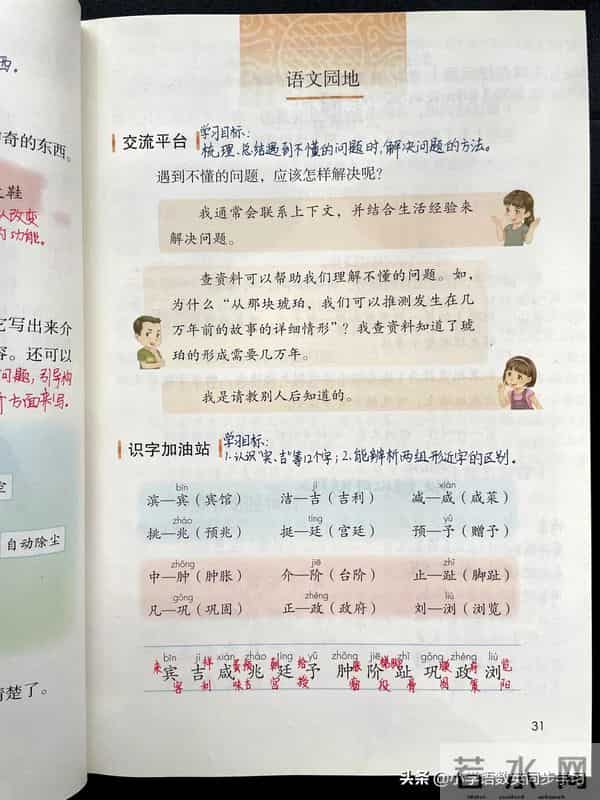 西。
奇的东西。
鞋
人改变
的功能。
它写出来介
容。还可以
问题，引导构
个方面来写。
自动除尘
清楚了。
语文园地
交流平台
学习目标：
梳理、总结遇到不懂的问题时，解决问题的方法。
遇到不懂的问题，应该怎样解决呢？
我通常会联系上下文，并结合生活经验来
解决问题。
查资料可以帮助我们理解不懂的问题。如，
为什么“从那块琥珀，我们可以推测发生在几
万年前的故事的详细情形”？我查资料知道了琥
珀的形成需要几万年。
我是请教别人后知道的。
识字加油站
学习目标：
1.认识“宾、吉”等12个字；2.能辨析两组形近字的区别。
bīn jí xián
滨—宾（宾馆） 洁—吉（吉利） 减—咸（咸菜）
zhào tíng yǔ
挑—兆（预兆） 挺—廷（宫廷） 预—予（赠予）
zhǒng jiē zhǐ
中—肿（肿胀） 介—阶（台阶） 止—趾（脚趾）
gǒng zhèng liú
凡—巩（巩固） 正—政（政府） 刘—浏（浏览）
bīn jí xián zhào tíng yǔ zhǒng jiē zhǐ gǒng zhèng liú
宾 吉 咸 兆 廷 予 肿 阶 趾 巩 政 浏
31
若水网
头条 @小学语数英同步学习